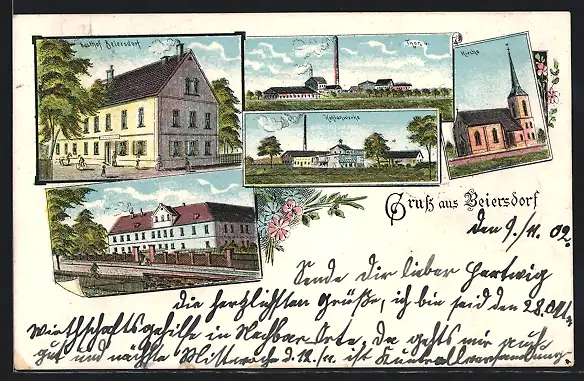 Gasthof Beiersdorf
Thon u.
Kohlenwerke
Kirche
Gruß aus Beiersdorf
den 9./11. 02.
Sende Dir lieber Hartwig
die herzlichsten Grüße, ich bin seid den 28. Okt.
Wirthschaftsgehilfe in Nachbar Orte, Da gehts mir auch
gut und nächste Mittwoch d. 12./11. ist Kontrollversammlung